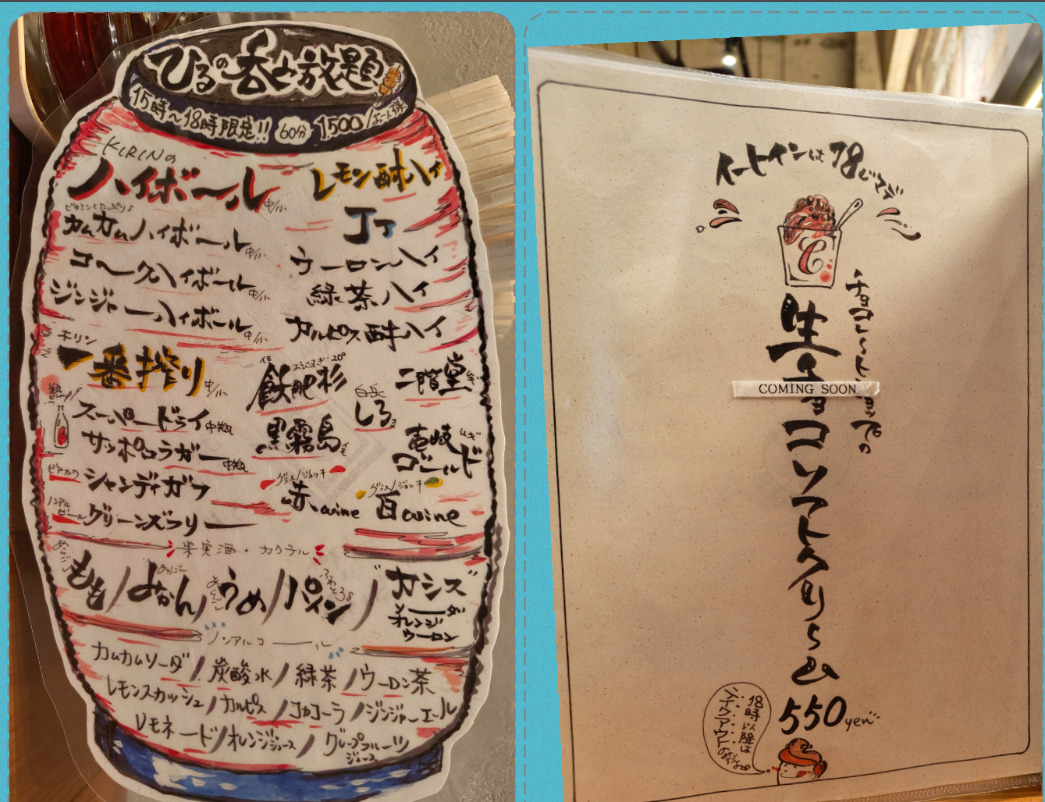 ひるの呑み放題
15時～18時限定!! 60分 1500/お一人様
KIRINの
ハイボール 中/小
ビタミンCたっぷり♪
カムカムハイボール 中/小
コークハイボール 中/小
ジンジャーハイボール 中/小
キリン
一番搾り 中/小
スーパードライ 中瓶
サッポロラガー 中瓶
シャンディガフ
ノンアルビール グリーンズフリー
レモン酎ハイ
JJ
ウーロンハイ
緑茶ハイ
カルピス酎ハイ
飫肥杉 20°
黒霧島
白岳
しろ
二階堂
壱岐
ゴールド
グラス/ジョッキ
赤wine
グラス/ジョッキ
白wine
果実酒・カクテル
もも/みかん/うめ/パイン/カシス
ソーダ
オレンジ
ウーロン
ノンアルコール
カムカムソーダ/炭酸水/緑茶/ウーロン茶
レモンスカッシュ/カルピス/コカコーラ/ジンジャーエール
レモネード/オレンジジュース/グレープフルーツジュース
イートインは18じまで
C
チョコレート
生チョコソフトクリーム
COMING SOON
550yen
18時以降は
テイクアウト